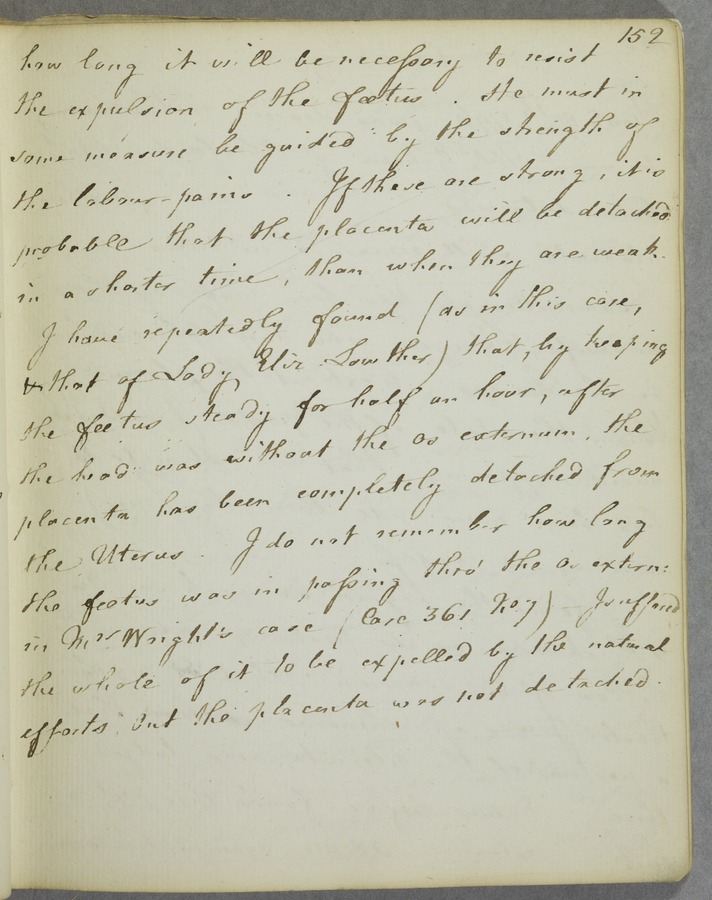 152
how long it will be necessary to resist
the expulsion of the foetus. He must in
some measure be guided by the strength of
the labour-pains. If these are strong, it is
probable that the placenta will be detached
in a shorter time, than when they are weak.
I have repeatedly found (as in this case,
& that of Lady Eliz. Lowther) that, by keeping
the foetus steady for half an hour, after
the head was without the os externum, the
placenta has been completely detached from
the Uterus. I do not remember how long
the foetus was in passing thro' the os extern:
in Mrs Wright's case (Case 361 ) - I suffered
the whole of it to be expelled by the natural
efforts but the placenta was not detached.